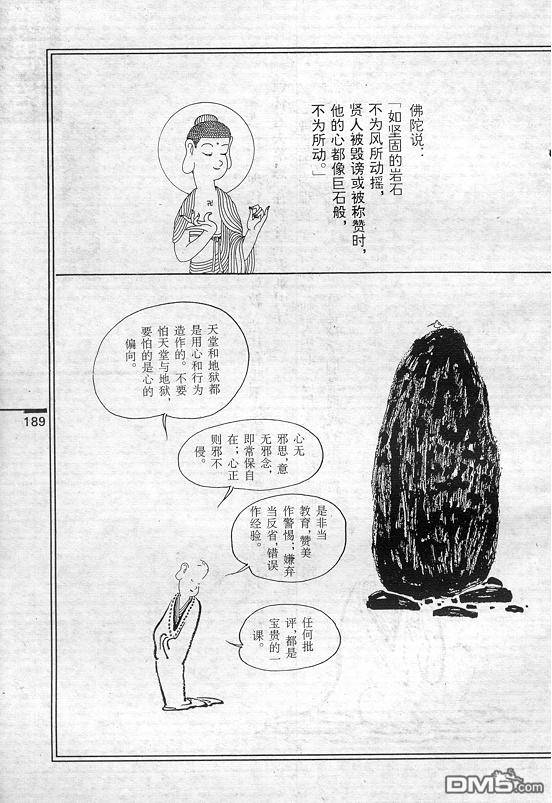 佛陀说：
「如坚固的岩石
不为风所动摇，
贤人被毁谤或被称赞时，
他的心都像巨石般，
不为所动。」
天堂和地狱都
是用心和行为
造作的。不要
怕天堂与地狱，
要怕的是心的
偏向。
心无
邪思，意
无邪念，
即常保自
在；心正
则邪不
侵。
是非当
教育，赞美
作警惕；嫌弃
当反省，错误
作经验。
任何批
评，都是
宝贵的一
课。
189
DM5.com